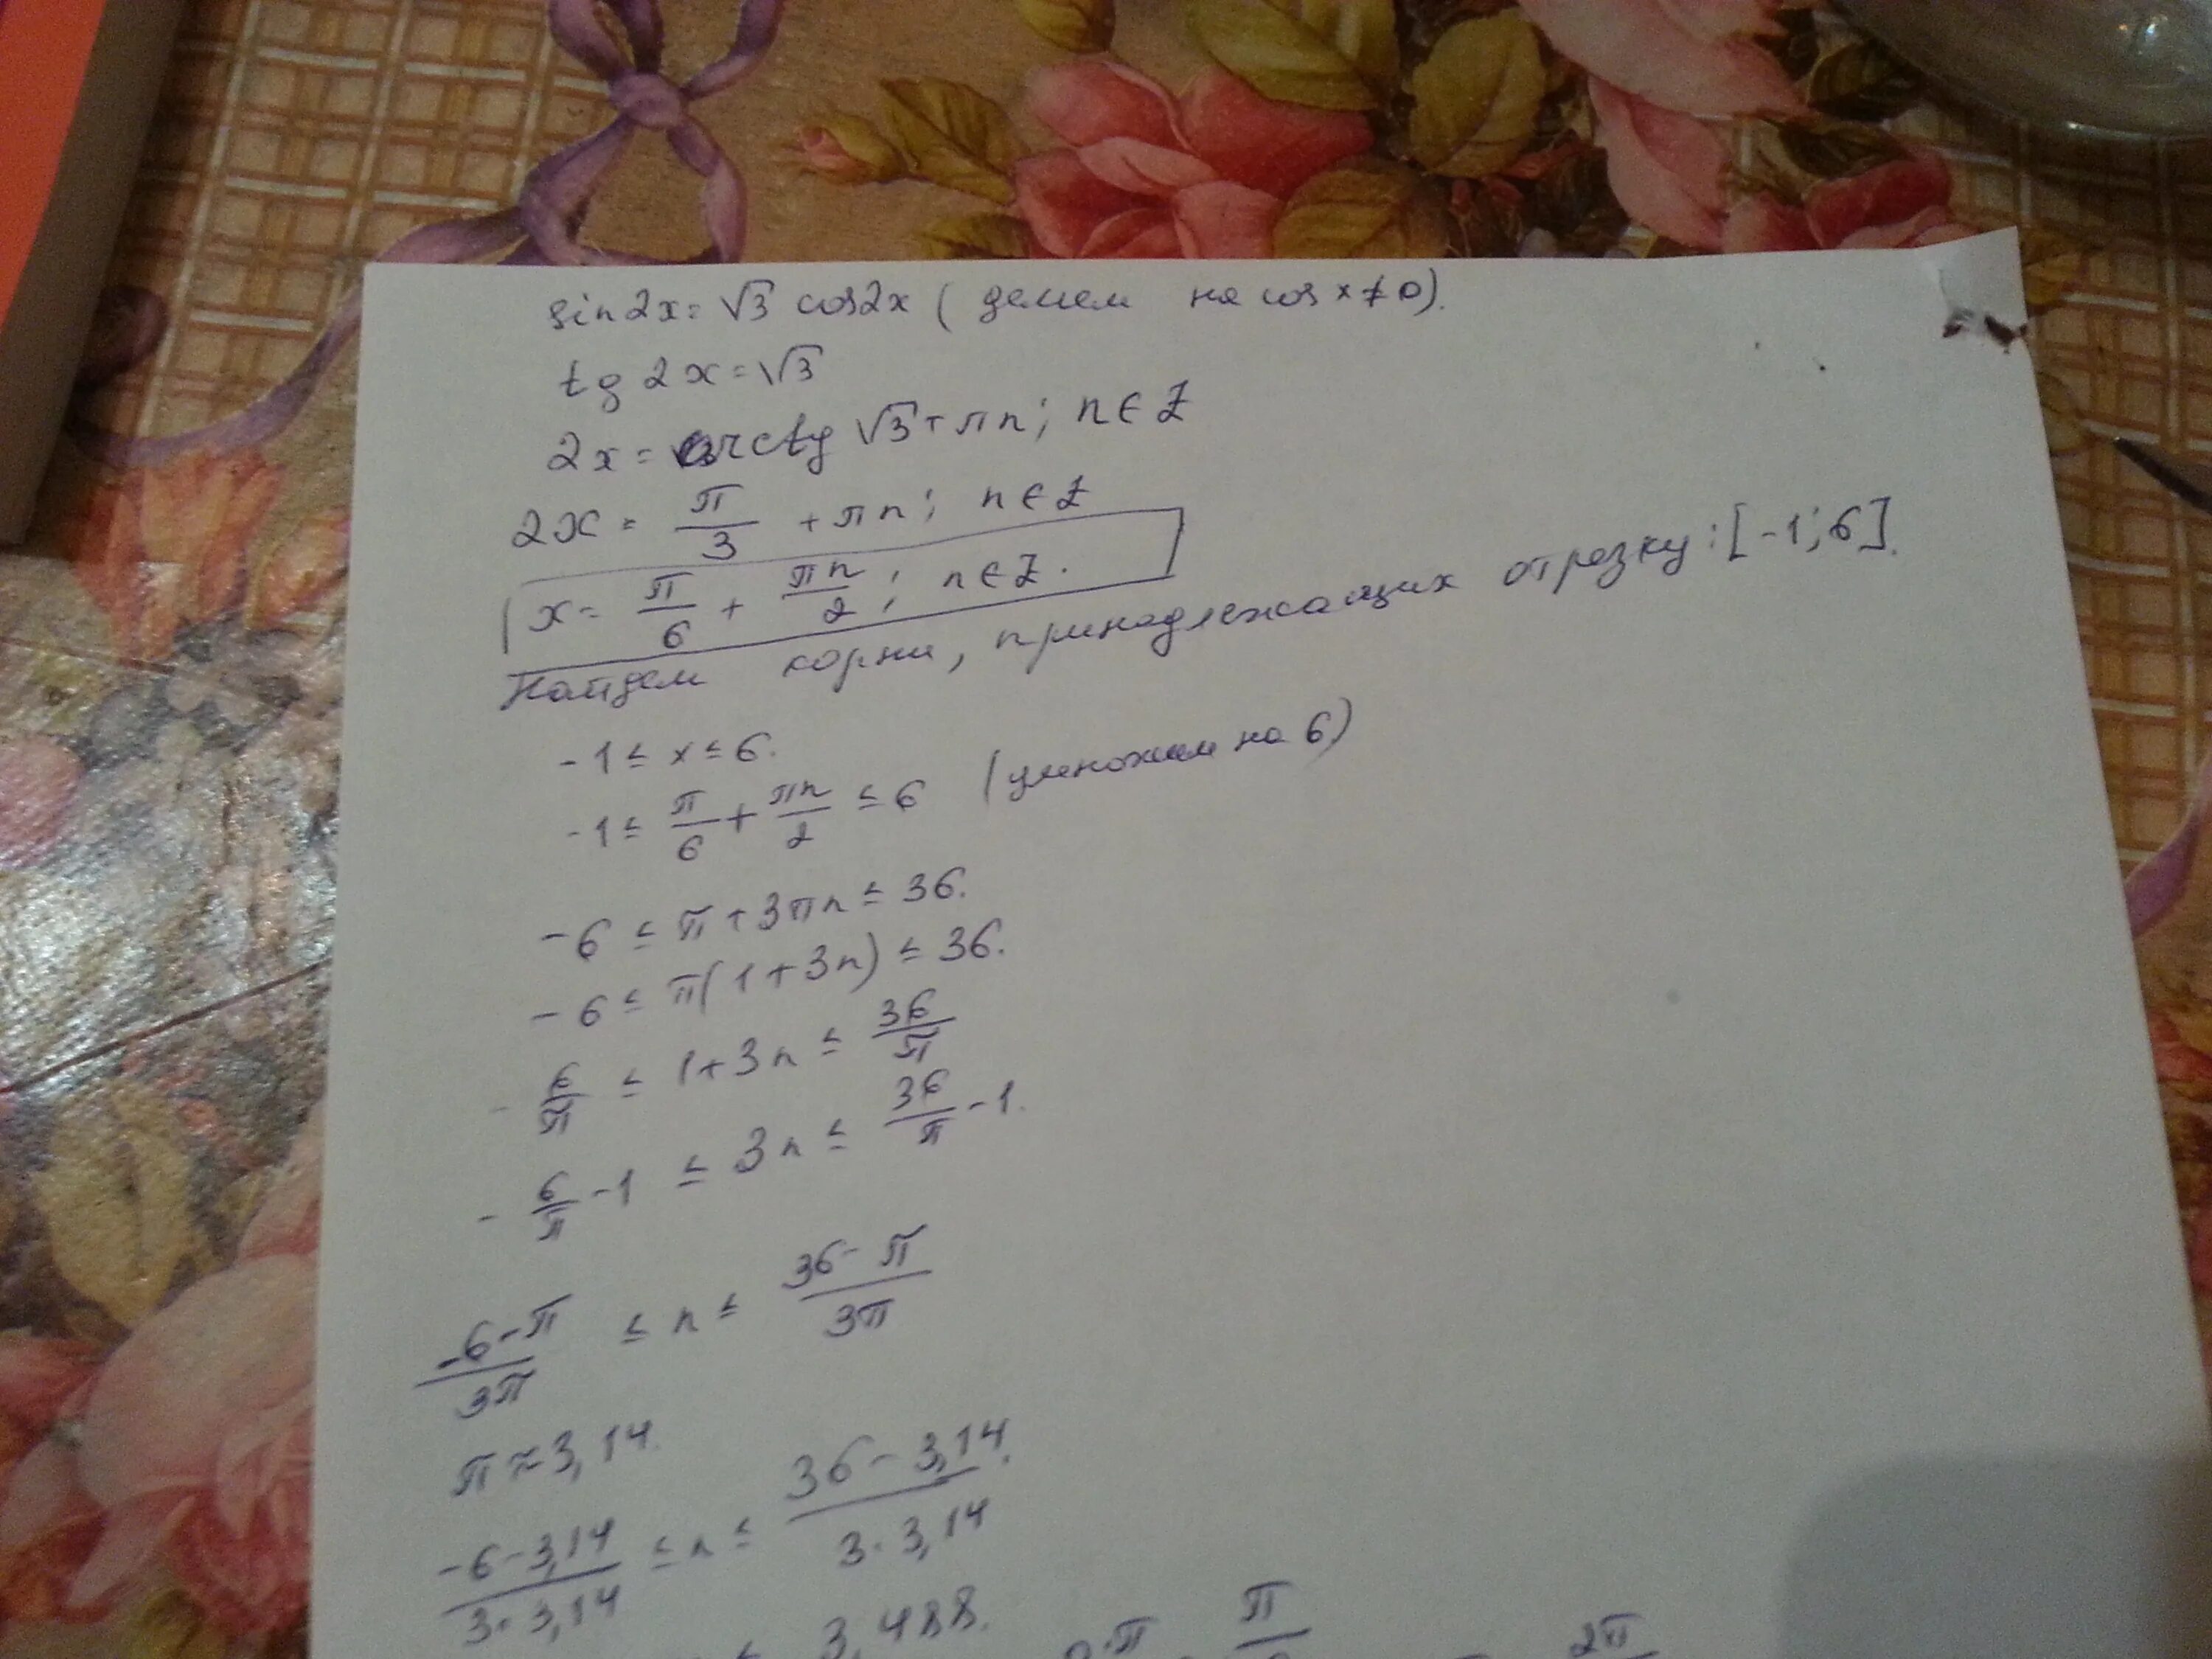 sin2x = √3 cos2x ( делим на cos x ≠ 0).
tg 2x = √3
2x = arctg √3 + πn; n ∈ Z
2x = π/3 + πn; n ∈ Z
x = π/6 + πn/2; n ∈ Z.
Найдем корни, принадлежащих отрезку: [-1; 6].
-1 ≤ x ≤ 6.
-1 ≤ π/6 + πn/2 ≤ 6 (умножим на 6)
-6 ≤ π + 3πn ≤ 36.
-6 ≤ π(1+3n) ≤ 36.
-6/π ≤ 1+3n ≤ 36/π
-6/π - 1 ≤ 3n ≤ 36/π - 1.
(-6-π)/3π ≤ n ≤ (36-π)/3π
π ≈ 3,14.
(-6-3,14)/(3·3,14) ≤ n ≤ (36-3,14)/(3·3,14).
≤ 3,488. π π 2π